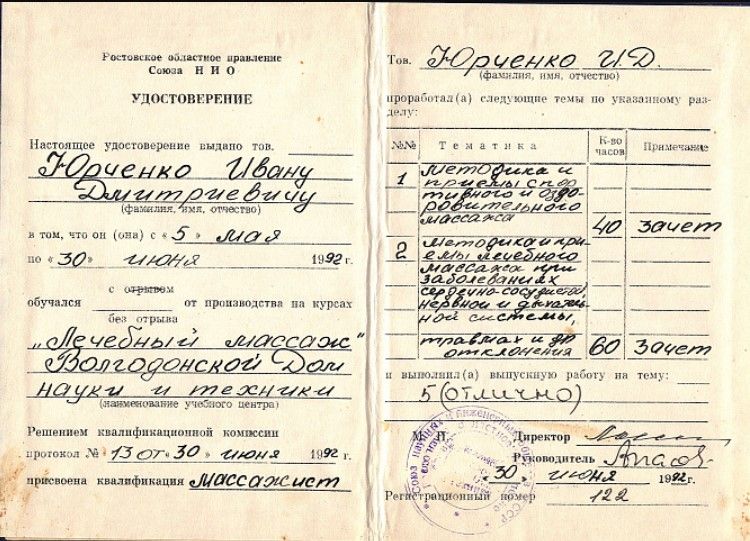 Ростовское областное правление
Союза НИО
УДОСТОВЕРЕНИЕ
Настоящее удостоверение выдано тов.
Юрченко Ивану
Дмитриевичу
(фамилия, имя, отчество)
в том, что он (она) с «5» мая
по «30» июня 1992 г.
с отрывом
обучался от производства на курсах
без отрыва
„Лечебный массаж"
Волгодонской Дом
науки и техники
(наименование учебного центра)
Решением квалификационной комиссии
протокол № 13 от «30» июня 1992 г.
присвоена квалификация массажист
Тов. Юрченко И.Д.
(фамилия, имя, отчество)
проработал(а) следующие темы по указанному раз-
делу:
№№ Тематика К-во часов Примечание
1 методика и
приемы спор
тивного и оздо
ровительного
массажа 40 зачет
2 методика и при-
емы лечебного
массажа при
заболеваниях
сердечно-сосудистой
нервной и дыхатель
ной системы,
травмах и др
отклонения 60 зачет
и выполнил(а) выпускную работу на тему:
5 (отлично)
М. П. Директор
Руководитель
«30» июня 1992 г.
Регистрационный номер 122